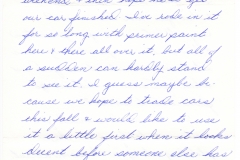 weekend & then hope made up
our car finished. I've rode in it
for so long with primer paint
here & there all over it, but all of
a sudden can hardly stand
to see it. I guess maybe be
cause we hope to trade cars
this fall & would like to use
it a little first when it looks
decent before someone else has